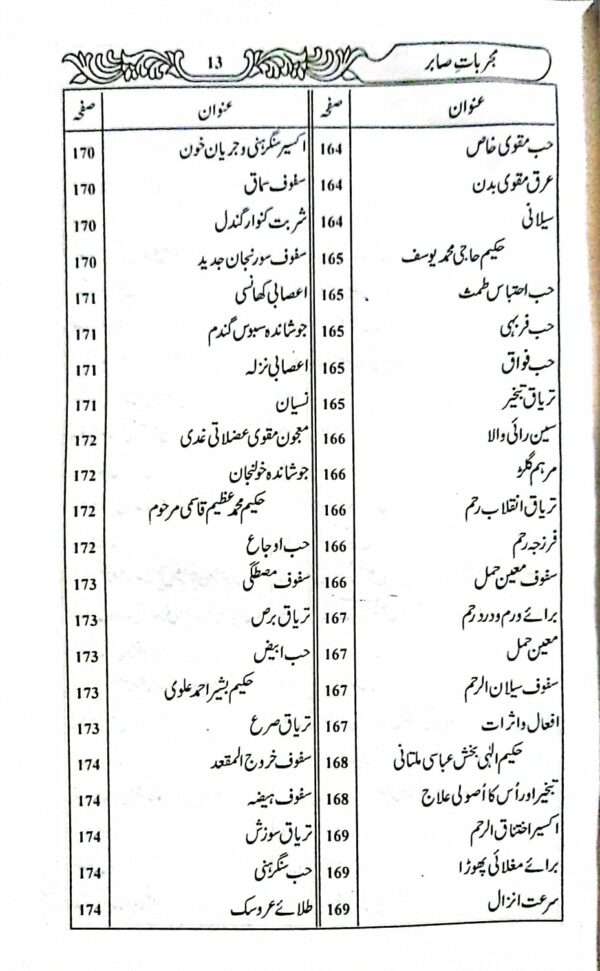 مجرباتِ صابر 13
عنوان صفحہ
حب مقوی خاص 164
عرق مقوی بدن 164
سیلانی 164
حکیم حاجی محمد یوسف 165
حب احتباس طمث 165
حب فربہی 165
حب فواق 165
تریاق تبخیر 165
سین رائی والا 166
مرہم گلڑ 166
تریاق انقلاب رحم 166
فرزجہ رحم 166
سفوف معین حمل 166
برائے ورم و درد رحم 167
معین حمل 167
سفوف سیلان الرحم 167
افعال و اثرات 167
حکیم الٰہی بخش عباسی ملتانی 168
تبخیر اور اُس کا اُصولی علاج 168
اکسیر اختناق الرحم 169
برائے مغلائی پھوڑا 169
سرعت انزال 169
عنوان صفحہ
اکسیر سنگرہنی و جریان خون 170
سفوف سماق 170
شربت کنوار گندل 170
سفوف سورنجان جدید 170
اعصابی کھانسی 171
جوشاندہ سبوس گندم 171
اعصابی نزلہ 171
نسیان 171
معجون مقوی عضلاتی غدی 172
جوشاندہ خولنجان 172
حکیم محمد عظیم قاسمی مرحوم 172
حب اوجاع 172
سفوف مصطگی 173
تریاق برص 173
حب ابیض 173
حکیم بشیر احمد علوی 173
تریاق صرع 173
سفوف خروج المقعد 174
سفوف ہیضہ 174
تریاق سوزش 174
حب سنگرہنی 174
طلائے عروسک 174